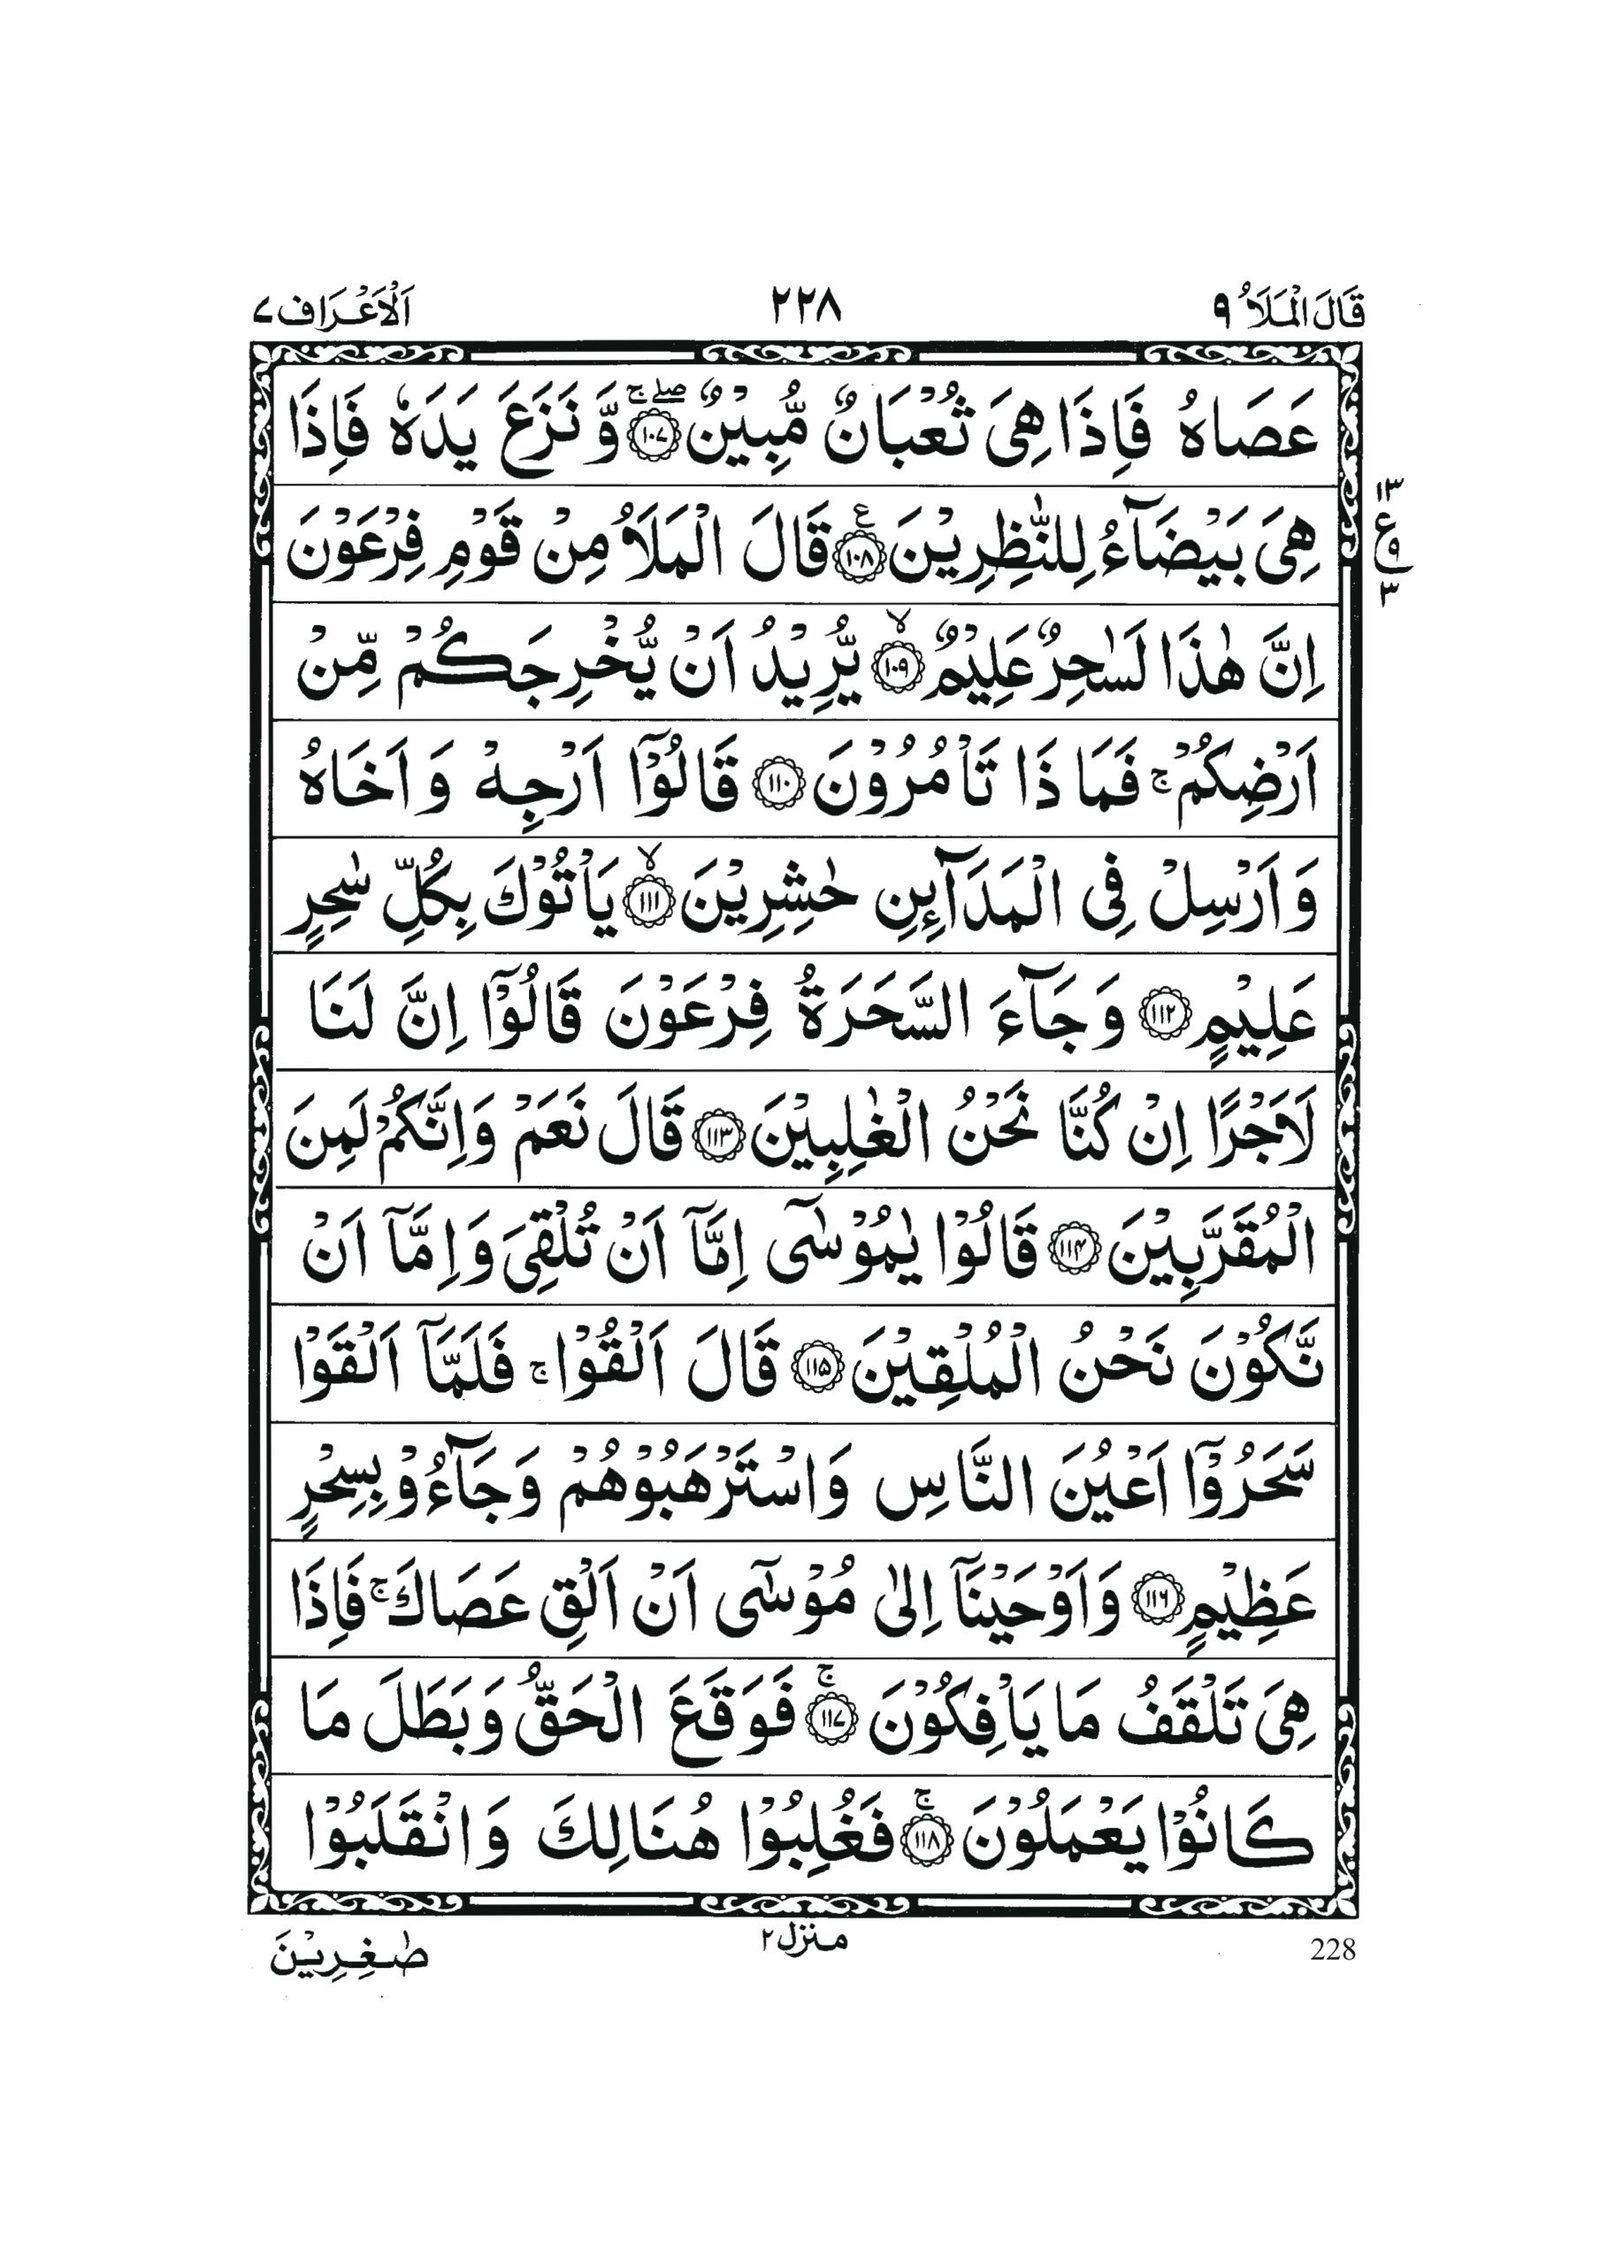 قَالَ الْمَلَاُ ۹
۲۲۸
اَلْاَعْرَاف ۷
عَصَاهُ فَاِذَا هِىَ ثُعْبَانٌ مُّبِيْنٌ ۝۱۰۷ ۖۚ وَّ نَزَعَ يَدَهٗ فَاِذَا
هِىَ بَيْضَآءُ لِلنّٰظِرِيْنَ ۝۱۰۸ ع قَالَ الْمَلَاُ مِنْ قَوْمِ فِرْعَوْنَ
اِنَّ هٰذَا لَسٰحِرٌ عَلِيْمٌ ۝۱۰۹ ۙ يُّرِيْدُ اَنْ يُّخْرِجَكُمْ مِّنْ
اَرْضِكُمْ ۚ فَمَا ذَا تَاْمُرُوْنَ ۝۱۱۰ قَالُوْٓا اَرْجِهْ وَ اَخَاهُ
وَ اَرْسِلْ فِى الْمَدَآئِنِ حٰشِرِيْنَ ۝۱۱۱ ۙ يَاْتُوْكَ بِكُلِّ سٰحِرٍ
عَلِيْمٍ ۝۱۱۲ وَ جَآءَ السَّحَرَةُ فِرْعَوْنَ قَالُوْٓا اِنَّ لَنَا
لَاَجْرًا اِنْ كُنَّا نَحْنُ الْغٰلِبِيْنَ ۝۱۱۳ قَالَ نَعَمْ وَاِنَّكُمْ لَمِنَ
الْمُقَرَّبِيْنَ ۝۱۱۴ قَالُوْا يٰمُوْسٰٓى اِمَّآ اَنْ تُلْقِىَ وَاِمَّآ اَنْ
نَّكُوْنَ نَحْنُ الْمُلْقِيْنَ ۝۱۱۵ قَالَ اَلْقُوْا ۚ فَلَمَّآ اَلْقَوْا
سَحَرُوْٓا اَعْيُنَ النَّاسِ وَاسْتَرْهَبُوْهُمْ وَجَآءُوْ بِسِحْرٍ
عَظِيْمٍ ۝۱۱۶ وَاَوْحَيْنَآ اِلٰى مُوْسٰٓى اَنْ اَلْقِ عَصَاكَ ۚ فَاِذَا
هِىَ تَلْقَفُ مَا يَاْفِكُوْنَ ۝۱۱۷ ۚ فَوَقَعَ الْحَقُّ وَبَطَلَ مَا
كَانُوْا يَعْمَلُوْنَ ۝۱۱۸ ۚ فَغُلِبُوْا هُنَالِكَ وَانْقَلَبُوْا
۱۳
ع
۹
۳
صٰغِرِيْنَ
منزل ۲
228